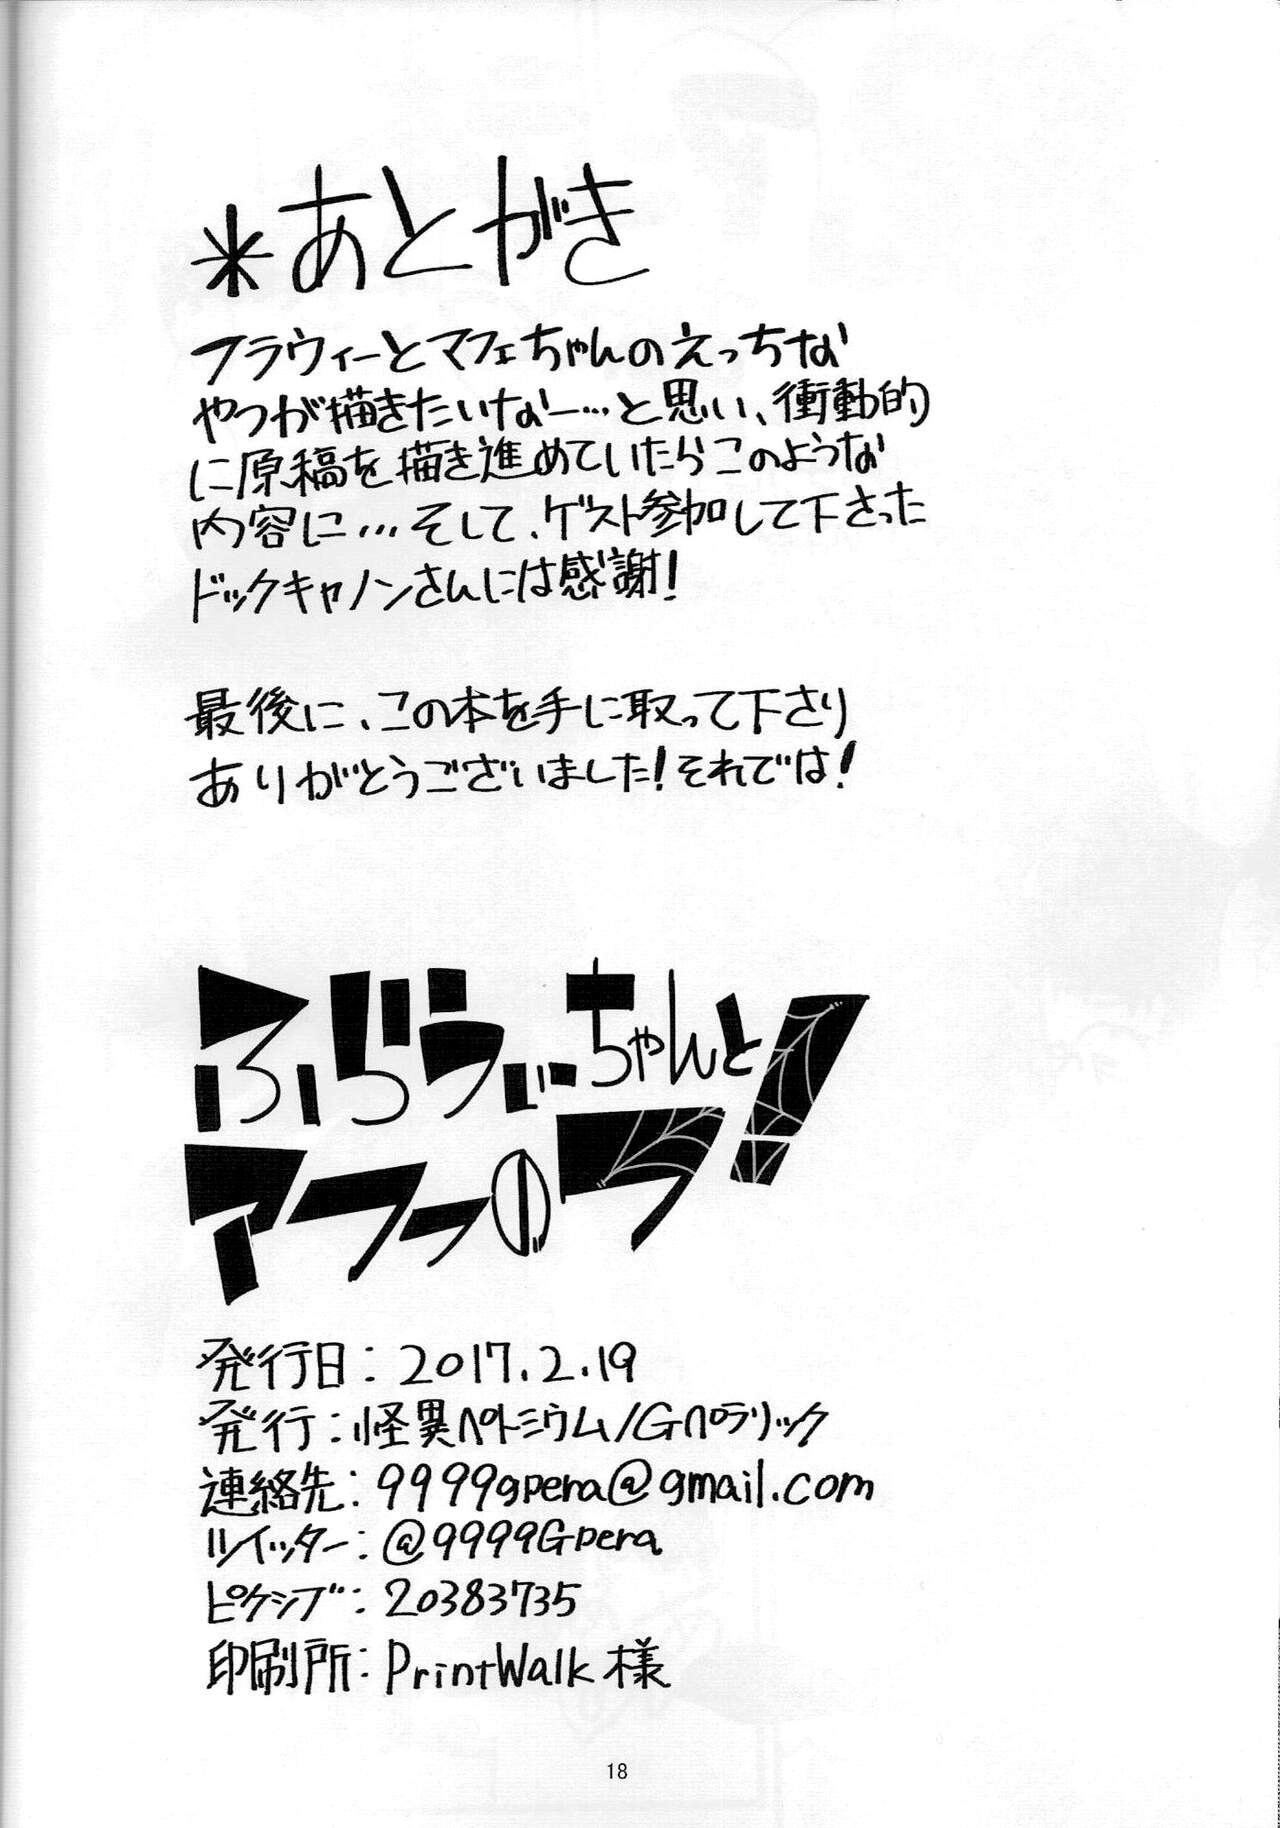 *あとがき
フラウィーとマフェちゃんのえっちな
やつが描きたいなー…と思い、衝動的
に原稿を描き進めていたらこのような
内容に…そして、ゲスト参加して下さった
ドックキャノンさんには感謝!
最後に、この本を手に取って下さり
ありがとうございました!それでは!
ふらうぃーちゃんと
アフー()ラ!
発行日:2017.2.19
発行:怪異ペトミウム/Gペラリック
連絡先:9999gpera@gmail.com
ツイッター:@9999Gpera
ピクシブ:20383735
印刷所:PrintWalk様
18